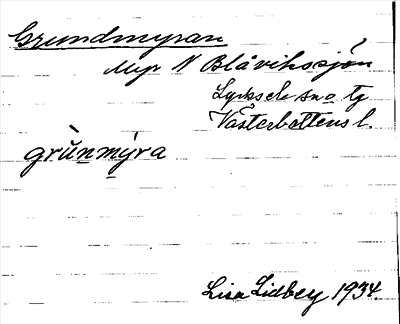 Grundmyran
Myr N Blåvikssjön
Lycksele sn o tg
Västerbottens l.
grùn̲m̲ýra
Lisa Lidbey 1934.